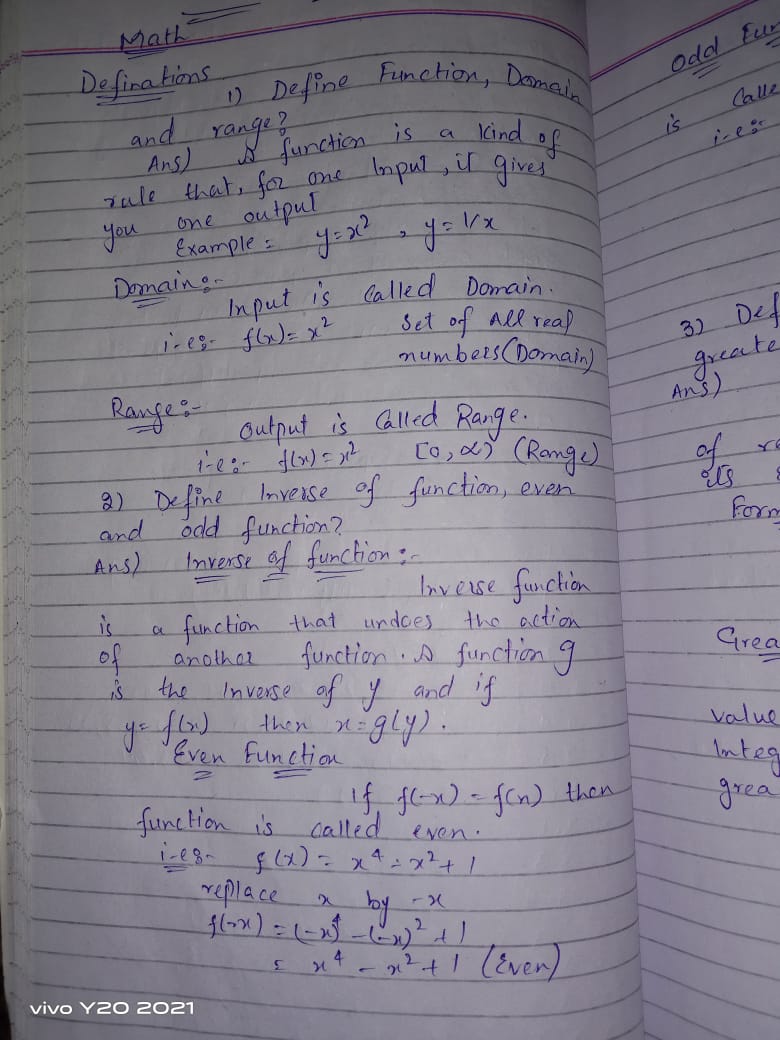 Math
Definations
1) Define Function, Domain
and range?
Ans) A function is a kind of
rule that, for one Input, it gives
you one output
Example = y=x² , y=1/x
Domain:-
Input is Called Domain.
i-e:- f(x)=x² Set of All real
numbers(Domain)
Range:-
Output is Called Range.
i-e:- f(x)=x² [0,∝) (Range)
2) Define Inverse of function, even
and odd function?
Ans) Inverse of function:-
Inverse function
is a function that undoes the action
of another function. A function g
is the Inverse of y and if
y= f(x) then x=g(y).
Even Function
If f(-x) = f(x) then
function is called even.
i-e:- f(x) = x⁴-x²+1
replace x by -x
f(-x) = (-x)⁴-(-x)²+1
= x⁴-x²+1 (Even)
odd Fun
Calle
is
i-e:-
3) Def
greate
Ans)
of re
its
Form
Grea
value
Integ
grea
vivo Y20 2021